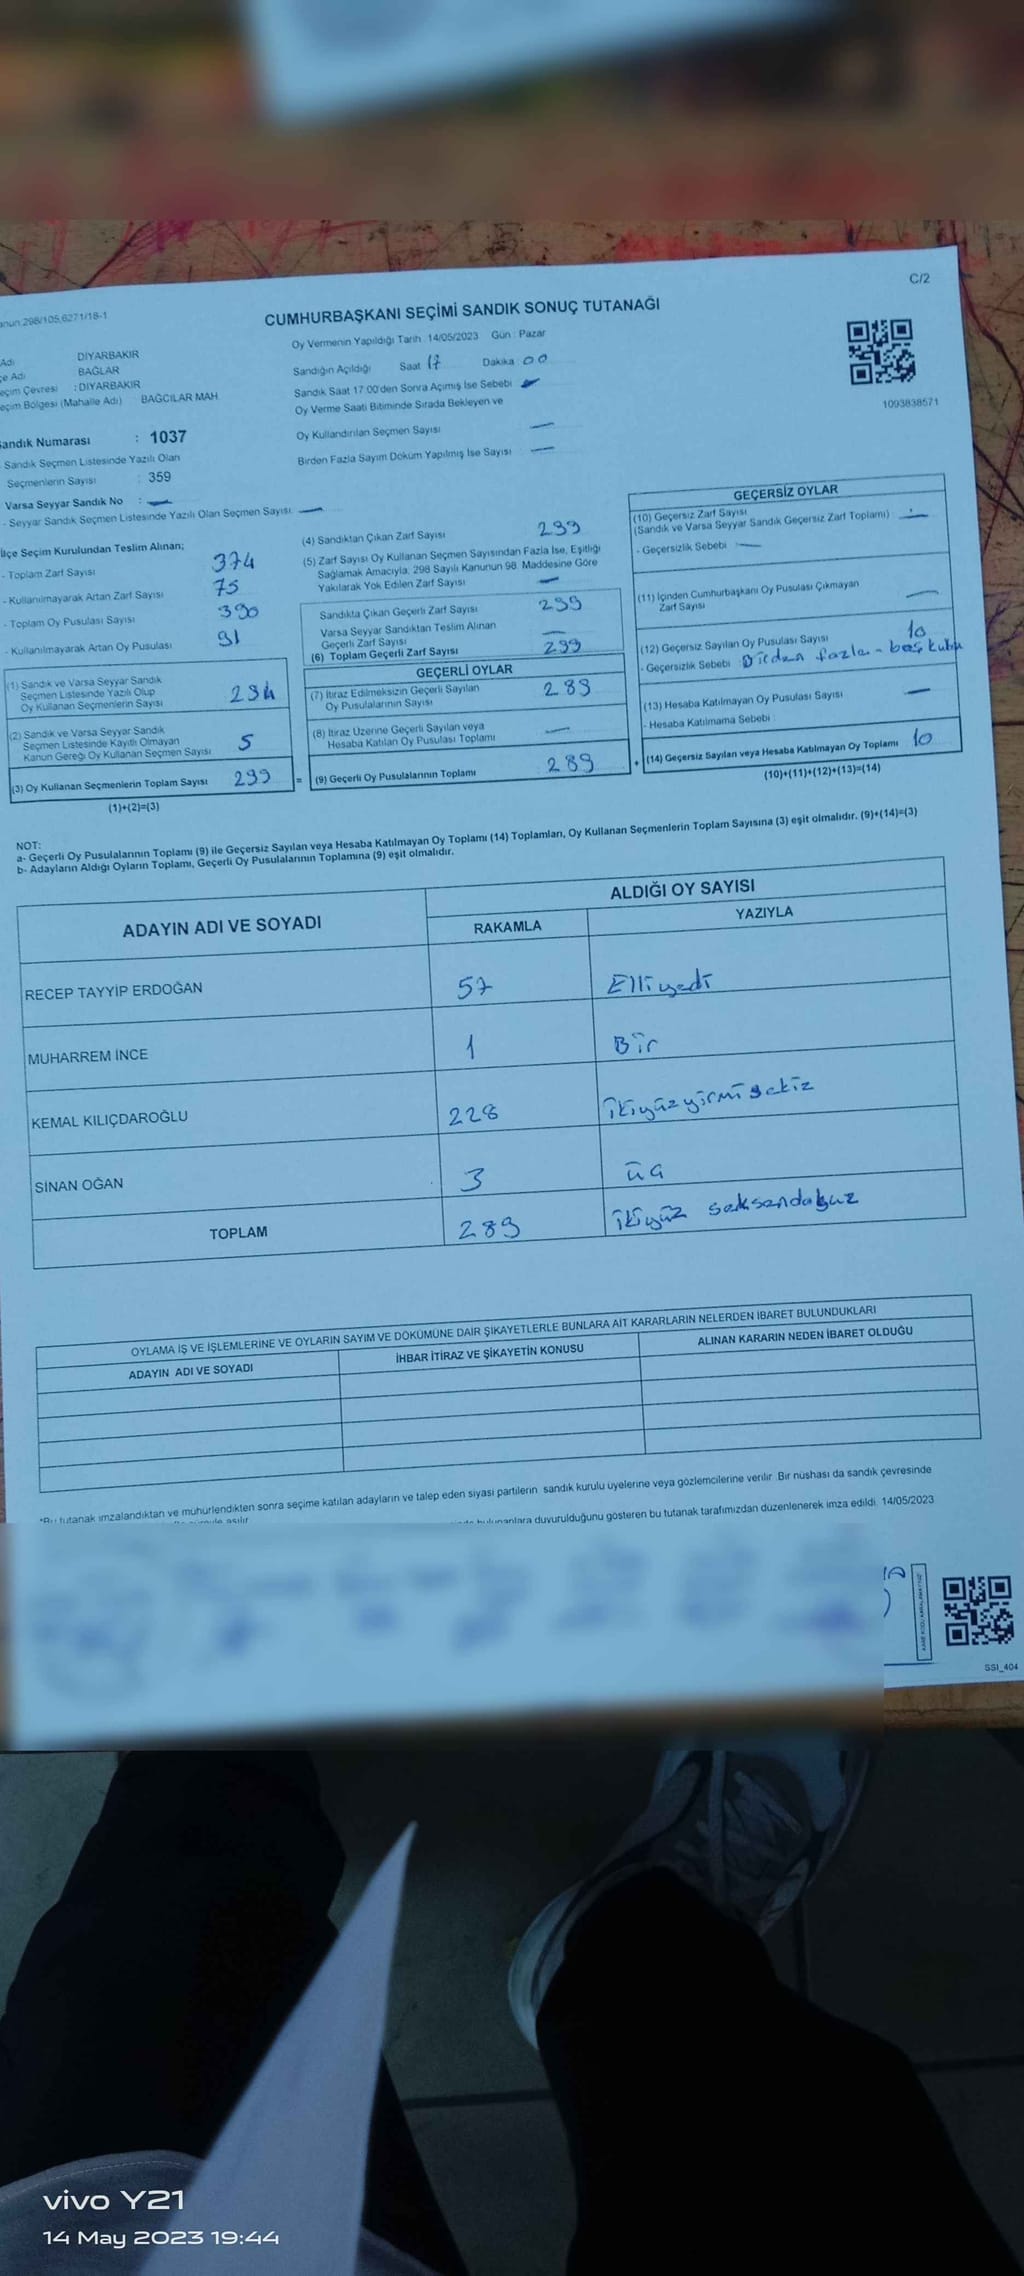 C/2
anun 298/105,6271/18-1
CUMHURBAŞKANI SEÇİMİ SANDIK SONUÇ TUTANAĞI
Adı DİYARBAKIR
çe Adı BAĞLAR
eçim Çevresi : DİYARBAKIR
eçim Bölgesi (Mahalle Adı) BAĞCILAR MAH.
andık Numarası : 1037
Sandık Seçmen Listesinde Yazılı Olan
Seçmenlerin Sayısı : 359
Varsa Seyyar Sandık No : —
- Seyyar Sandık Seçmen Listesinde Yazılı Olan Seçmen Sayısı: —
Oy Vermenin Yapıldığı Tarih : 14/05/2023 Gün : Pazar
Sandığın Açıldığı Saat 17 Dakika 00
Sandık Saat 17.00'den Sonra Açılmış İse Sebebi —
Oy Verme Saati Bitiminde Sırada Bekleyen ve
Oy Kullandırılan Seçmen Sayısı —
Birden Fazla Sayım Döküm Yapılmış İse Sayısı —
1093838571
İlçe Seçim Kurulundan Teslim Alınan;
- Toplam Zarf Sayısı 374
- Kullanılmayarak Artan Zarf Sayısı 75
- Toplam Oy Pusulası Sayısı 390
- Kullanılmayarak Artan Oy Pusulası 91
(1) Sandık ve Varsa Seyyar Sandık
Seçmen Listesinde Yazılı Olup
Oy Kullanan Seçmenlerin Sayısı 294
(2) Sandık ve Varsa Seyyar Sandık
Seçmen Listesinde Kayıtlı Olmayan
Kanun Gereği Oy Kullanan Seçmen Sayısı 5
(3) Oy Kullanan Seçmenlerin Toplam Sayısı 299
(1)+(2)=(3)
(4) Sandıktan Çıkan Zarf Sayısı 299
(5) Zarf Sayısı Oy Kullanan Seçmen Sayısından Fazla İse, Eşitliği
Sağlamak Amacıyla, 298 Sayılı Kanunun 98. Maddesine Göre
Yakılarak Yok Edilen Zarf Sayısı —
Sandıkta Çıkan Geçerli Zarf Sayısı 299
Varsa Seyyar Sandıktan Teslim Alınan
Geçerli Zarf Sayısı —
(6) Toplam Geçerli Zarf Sayısı 299
GEÇERLİ OYLAR
(7) İtiraz Edilmeksizin Geçerli Sayılan
Oy Pusulalarının Sayısı 289
(8) İtiraz Üzerine Geçerli Sayılan veya
Hesaba Katılan Oy Pusulası Toplamı —
= (9) Geçerli Oy Pusulalarının Toplamı 289
GEÇERSİZ OYLAR
(10) Geçersiz Zarf Sayısı
(Sandık ve Varsa Seyyar Sandık Geçersiz Zarf Toplamı) —
- Geçersizlik Sebebi —
(11) İçinden Cumhurbaşkanı Oy Pusulası Çıkmayan
Zarf Sayısı —
(12) Geçersiz Sayılan Oy Pusulası Sayısı 10
- Geçersizlik Sebebi Birden fazla - boş
(13) Hesaba Katılmayan Oy Pusulası Sayısı —
- Hesaba Katılmama Sebebi :
+ (14) Geçersiz Sayılan veya Hesaba Katılmayan Oy Toplamı 10
(10)+(11)+(12)+(13)=(14)
NOT:
a- Geçerli Oy Pusulalarının Toplamı (9) ile Geçersiz Sayılan veya Hesaba Katılmayan Oy Toplamı (14) Toplamları, Oy Kullanan Seçmenlerin Toplam Sayısına (3) eşit olmalıdır. (9)+(14)=(3)
b- Adayların Aldığı Oyların Toplamı, Geçerli Oy Pusulalarının Toplamına (9) eşit olmalıdır.
ADAYIN ADI VE SOYADI ALDIĞI OY SAYISI
RAKAMLA YAZIYLA
RECEP TAYYİP ERDOĞAN 57 Elliyedi
MUHARREM İNCE 1 Bir
KEMAL KILIÇDAROĞLU 228 ikiyüzyirmisekiz
SİNAN OĞAN 3 üç
TOPLAM 289 ikiyüz seksendokuz
OYLAMA İŞ VE İŞLEMLERİNE VE OYLARIN SAYIM VE DÖKÜMÜNE DAİR ŞİKAYETLERLE BUNLARA AİT KARARLARIN NELERDEN İBARET BULUNDUKLARI
ADAYIN ADI VE SOYADI İHBAR İTİRAZ VE ŞİKAYETİN KONUSU ALINAN KARARIN NEDEN İBARET OLDUĞU
*Bu tutanak imzalandıktan ve mühürlendikten sonra seçime katılan adayların ve talep eden siyasi partilerin sandık kurulu üyelerine veya gözlemcilerine verilir. Bir nüshası da sandık çevresinde
asılır.
bulunanlara duyurulduğunu gösteren bu tutanak tarafımızdan düzenlenerek imza edildi. 14/05/2023
SSI_404
vivo Y21
14 May 2023 19:44